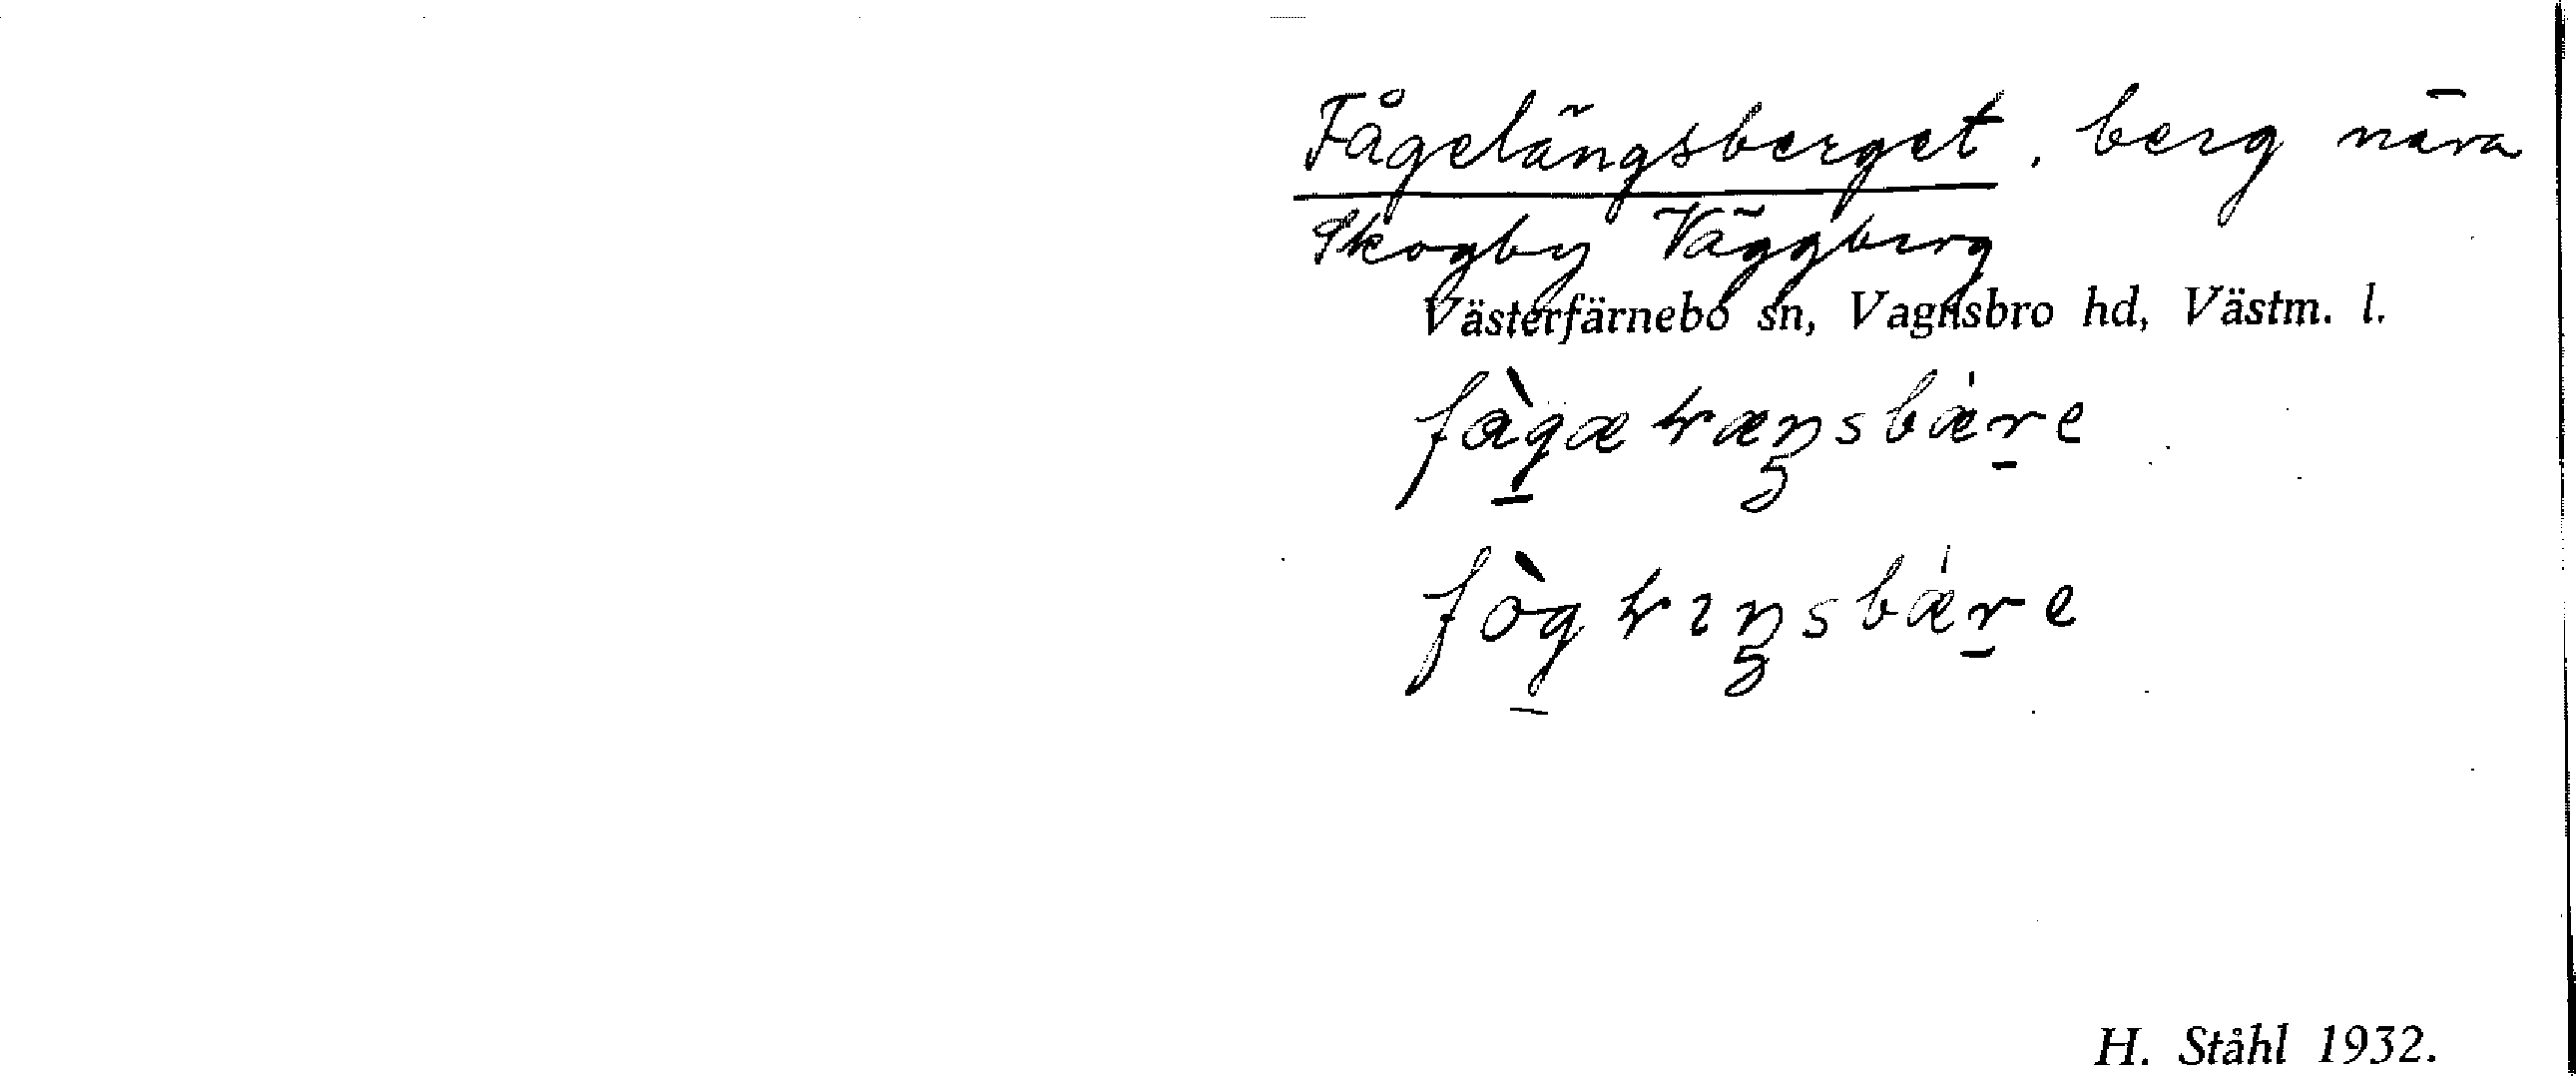 Fågelängsberget, berg nära
Skogby Väggberg
Västerfärnebo sn, Vagnsbro hd, Västm. l.
H. Ståhl 1932.